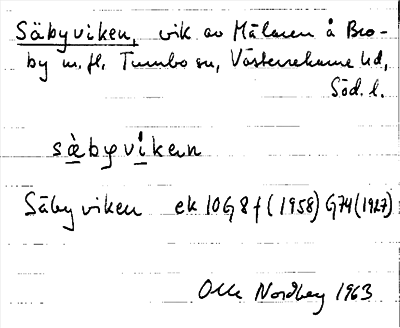 Säbyviken, vik av Mälaren å Bro-
by m. fl. Tumbo sn, Västerrekarne hd,
Söd. l.
sä̀byvi̇ken
Säbyviken ek 10G 8f (1958) G74 (1927)
Olle Nordberg 1963